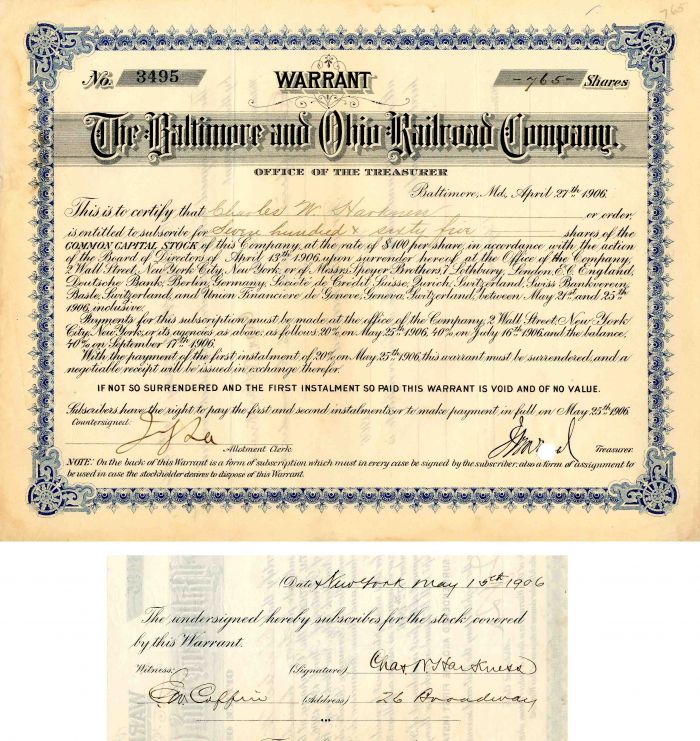 765
No. 3495 WARRANT -765- Shares
The Baltimore and Ohio Railroad Company.
OFFICE OF THE TREASURER
Baltimore, Md., April 27th 1906.
This is to certify that Charles W. Harkness or order,
is entitled to subscribe for Seven hundred & sixty five shares of the
COMMON CAPITAL STOCK of this Company, at the rate of $100 per share, in accordance with the action
of the Board of Directors of April 13th 1906, upon surrender hereof at the Office of the Company,
2 Wall Street, New York City, New York, or of Messrs Speyer Brothers, 7 Lothbury, London, E.C. England,
Deutsche Bank, Berlin, Germany, Societé de Crédit Suisse, Zurich, Switzerland, Swiss Bankverein,
Basle, Switzerland, and Union Financiere de Geneve, Geneva, Switzerland, between May 21st and 25th
1906, inclusive.
Payments for this subscription must be made at the office of the Company, 2 Wall Street, New York
City, New York, or its agencies as above, as follows, 20% on May 25th 1906, 40% on July 16th 1906, and the balance,
40% on September 17th 1906.
With the payment of the first instalment of 20% on May 25th 1906, this warrant must be surrendered, and a
negotiable receipt will be issued in exchange therefor.
IF NOT SO SURRENDERED AND THE FIRST INSTALMENT SO PAID THIS WARRANT IS VOID AND OF NO VALUE.
Subscribers have the right to pay the first and second instalments, or to make payment in full on May 25th 1906.
Countersigned:
Allotment Clerk. Treasurer.
NOTE: On the back of this Warrant is a form of subscription which must in every case be signed by the subscriber; also a form of assignment to
be used in case the stockholder desires to dispose of this Warrant.
(Date) New York May 15th 1906
The undersigned hereby subscribes for the stock covered
by this Warrant.
Witness: (Signature) Chas W Harkness
Coffin (Address) 26 Broadway